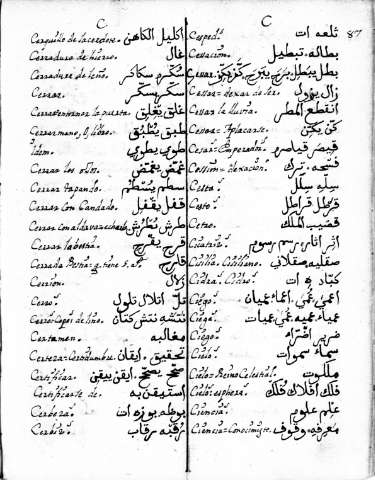 C
Cerquillo de la corona. اكليل الكاهن
Cerradura de hierro. غال
Cerradura de leño. سكّر سكاكر
Cerrar. سكّر يسكّر
Cerrar la puerta. غلق يغلق
Cerrar mano, ó libro. طبق يطبق
Idem. طوي يطوي
Cerrar los ojos. غمّض يغمّض
Cerrar tapando. سطم يسطم
Cerrar con Candado. قفل يقفل
Cerrar con aldava طرش يطرش
Cerrar la bestia.
Cerrada Bestia
Cerrion. زلال
Cerro. تلّ اتلال تلول
Cerro. Copo de lino. نتشه نتش كتان
Certamen. مغالبه
Certeza = Certidumbre. تحقيق. ايقان
Certificar. ايقن ييقن
Certificarte de. استيقن به
Cerveza. بوظه بوزه ات
Cerviz. رقبه رقاب
C
87
Cesped. تلعه ات
Cesacion. بطاله. تبطيل
Cesar. بطل يبطل
Cesar = dexar de ser. زال يزول
Cesar la lluvia. انقطع المطر
Cesar = Aplacarse. كنّ يكنّ
Cesar = Emperador. قيصر قياصره
Cession = Donacion. ترك
Cesta. سله سلل
Cesto. قرطل قراطل
Cetro. قضيب الملك
Cicatriz. اثر اثار. رسم رسوم
Cicilia. Ciciliano. صقليه صقلاني
Cidra. Cidro. كبّاد ه ات
Ciego. اعمي عمي. اعماء عميان
Ciega. عمياء عميه عمي عميات
Ciego. ضرير اضراء
Cielo. سماء سموات
Cielo = Reino Celestial. ملكوت
Cielo = esphera. فلك افلاك فلك
Ciencia. علم علوم
Ciencia = Conocimiento. معرفه وقوف